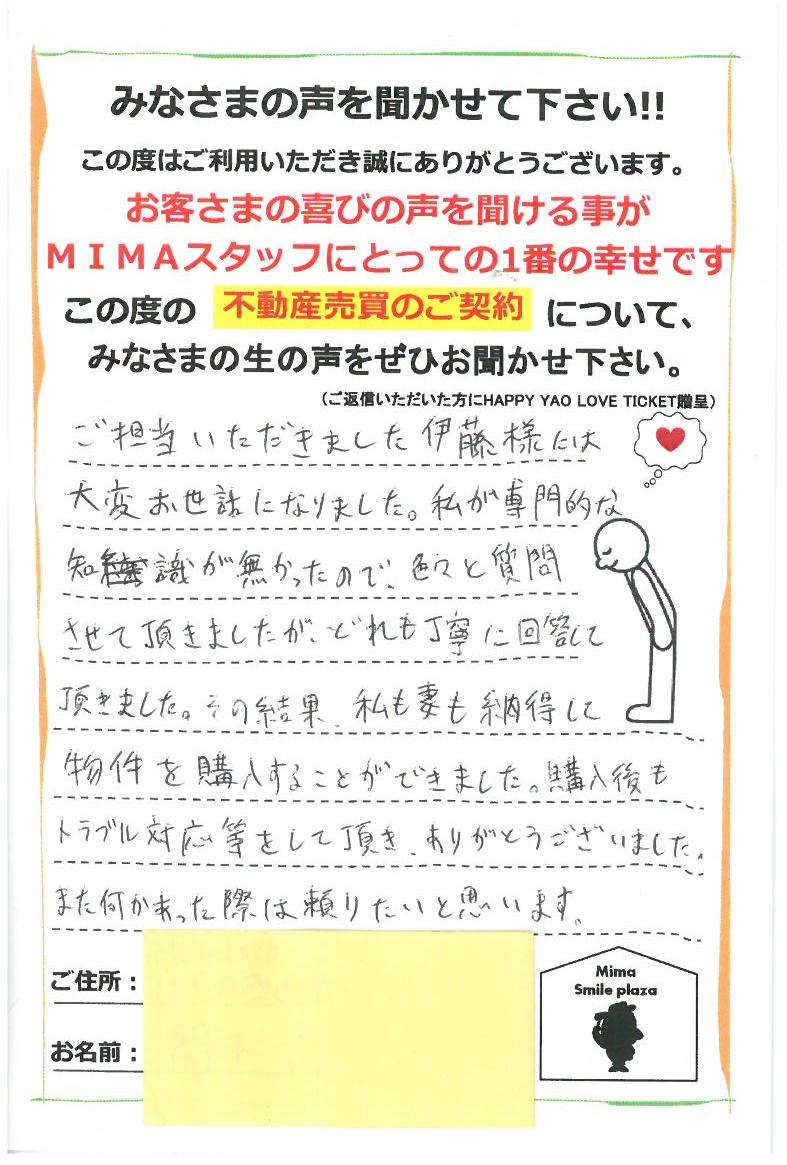 みなさまの声を聞かせて下さい!!
この度はご利用いただき誠にありがとうございます。
お客さまの喜びの声を聞ける事が
MIMAスタッフにとっての1番の幸せです
この度の 不動産売買のご契約 について、
みなさまの生の声をぜひお聞かせ下さい。
(ご返信いただいた方にHAPPY YAO LOVE TICKET贈呈)
ご担当いただきました伊藤様には
大変お世話になりました。私が専門的な
知識が無かったので、色々と質問
させて頂きましたが、どれも丁寧に回答して
頂きました。その結果、私も妻も納得して
物件を購入することができました。購入後も
トラブル対応等をして頂き、ありがとうございました。
また何かあった際は頼りたいと思います。
ご住所:
お名前:
Mima
Smile plaza